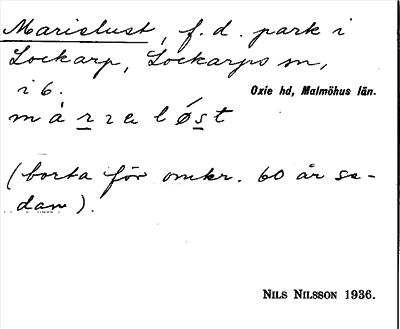 Marislust, f. d. park i
Lockarp, Lockarps sn,
i 6.
Oxie hd, Malmöhus län.
(borta för omkr. 60 år se-
dan).
NILS NILSSON 1936.